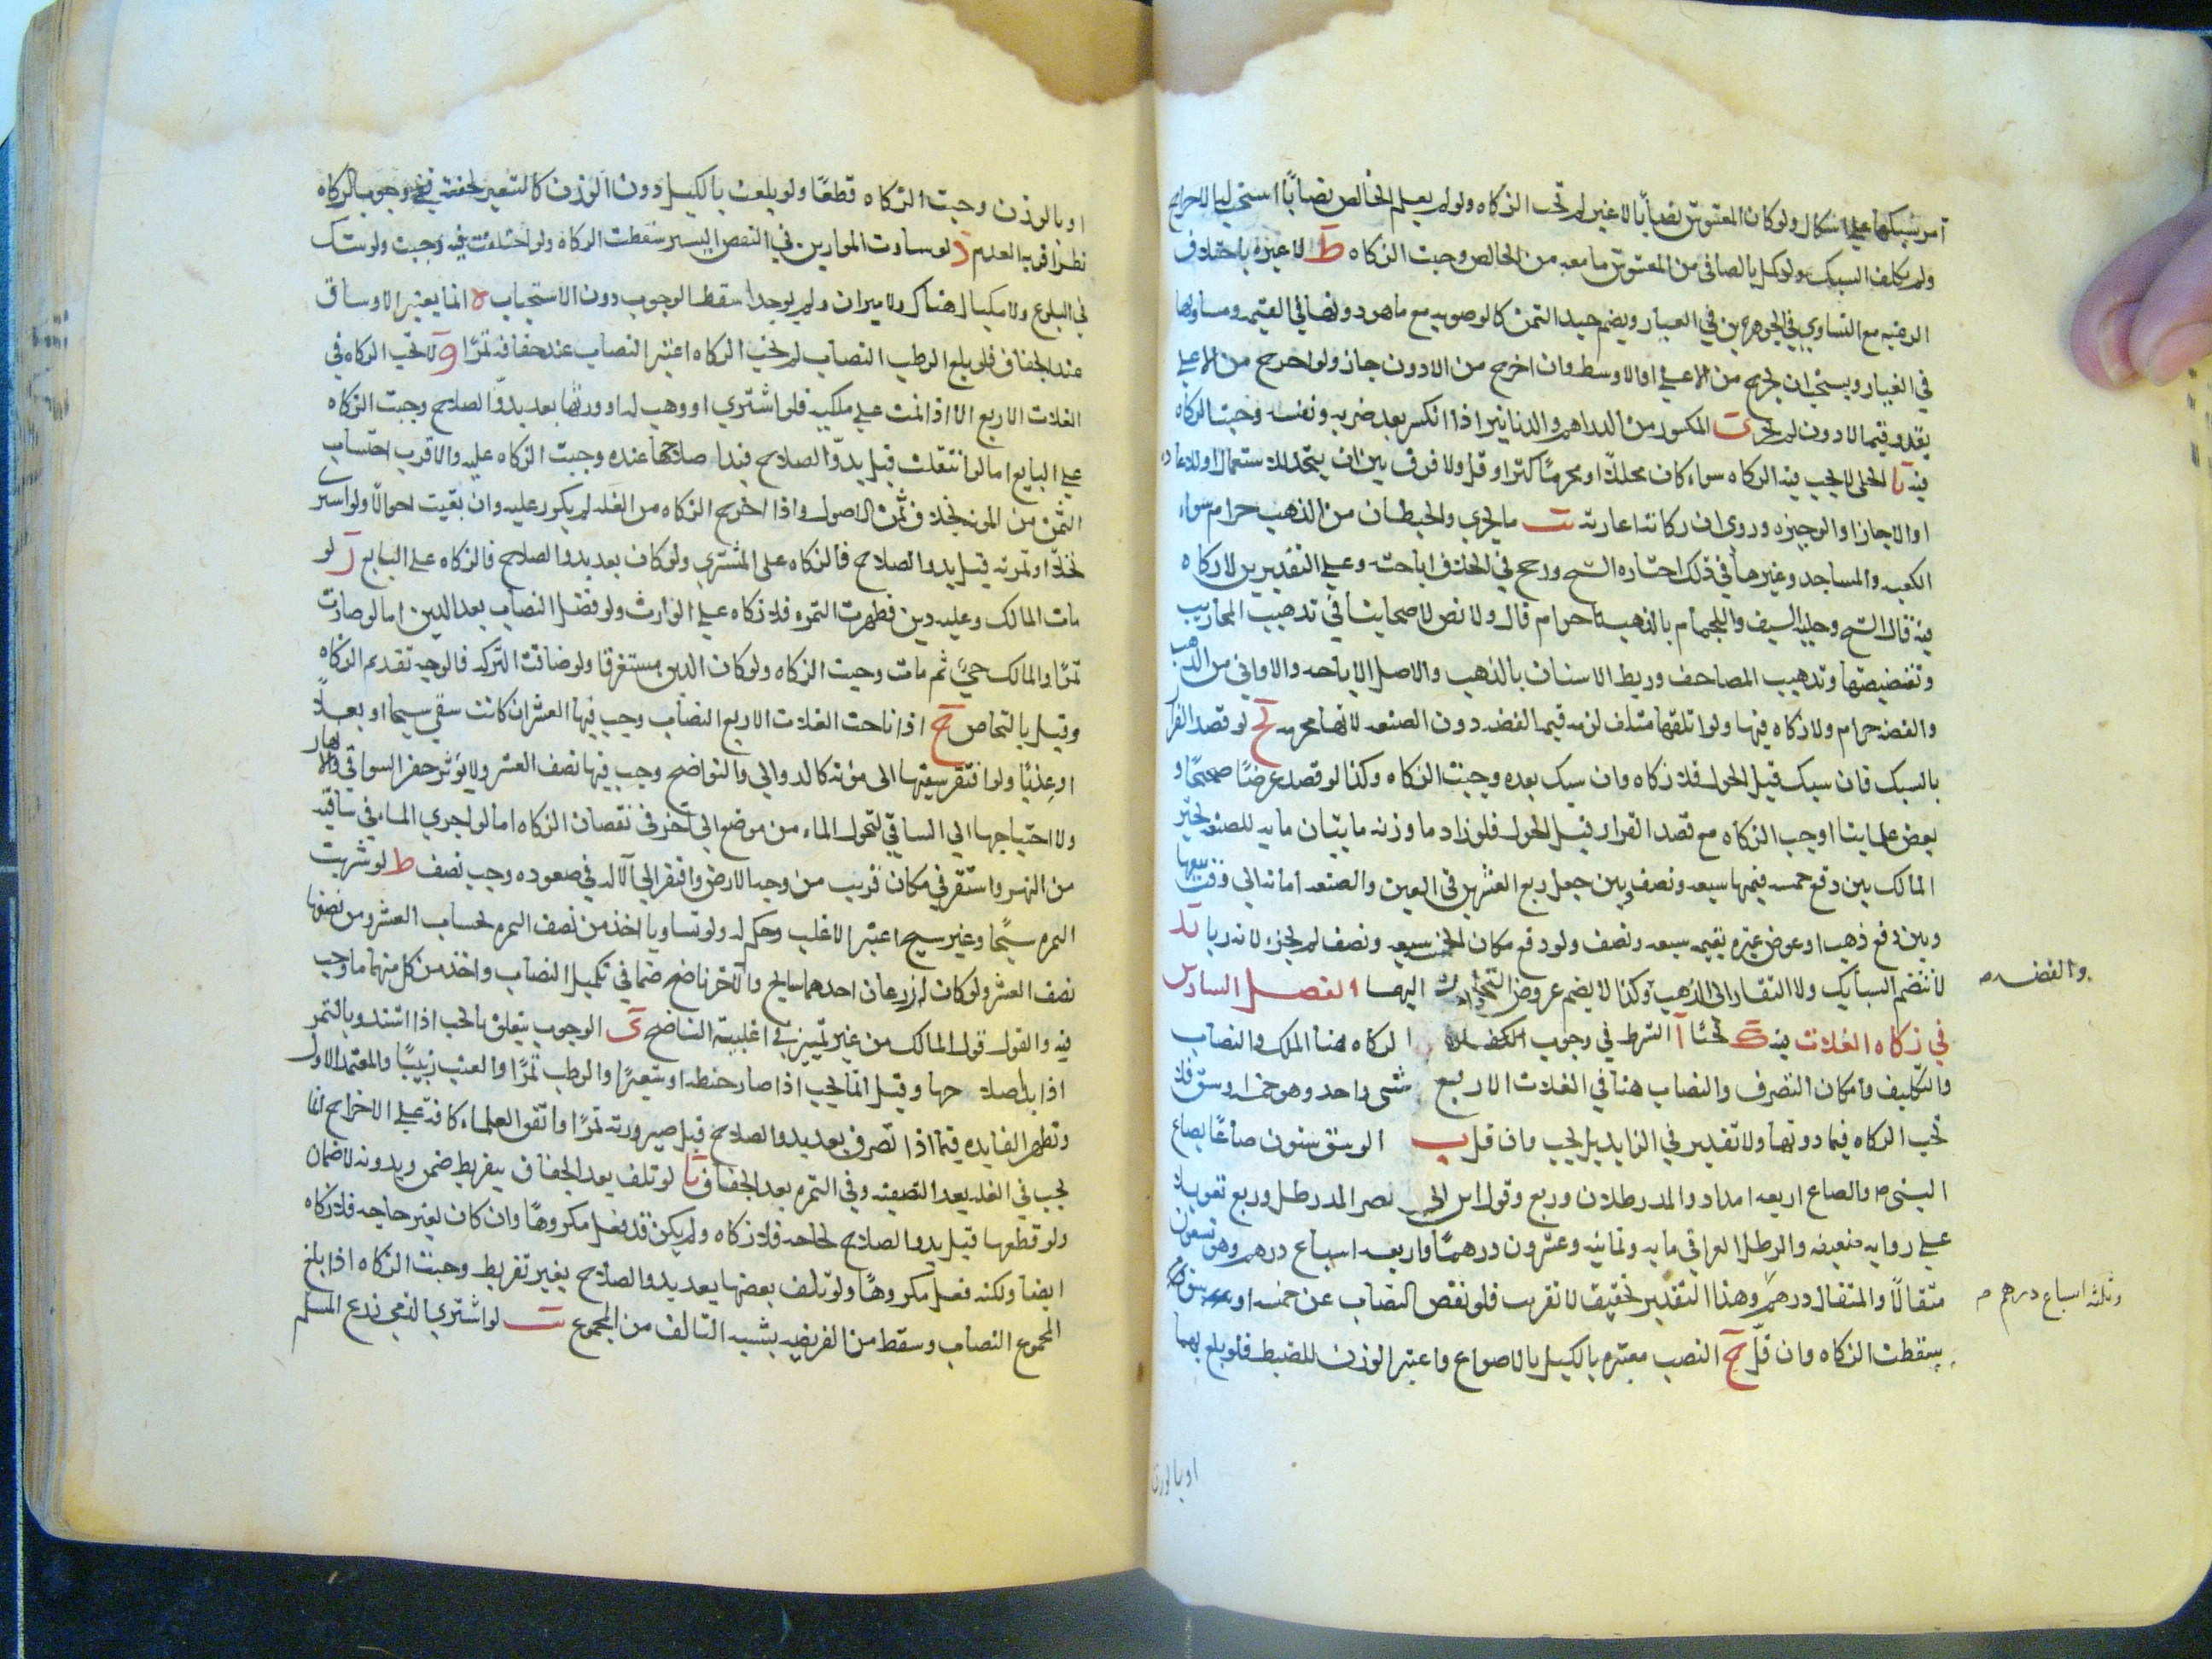 امر بسبكها على اشكال ولو كان المغشوش نصابا لا غير لم تجب الزكاه ولو لم يعلم الخالص نصابًا استحب له الاخراج
ولم يكلف السبك ولو كمل بالصافي من المغشوش ما معه من الخالص وجبت الزكاه ط لا عبره باختلاف
الرغبه مع التساوي في الجوهرين في العيار ويضم جيد الثمن كالرضويه مع ما هو دونها في القيمه ومساويها
في العيار ويستحب ان يخرج من الاعلى او الاوسط وان اخرج من الادون جاز ولو اخرج من الاعلى
بقدر قيمه الادون لم يجز ى المكسور من الدراهم والدنانير اذا انكسر بعد ضربه ونقشه وجبت الزكاه
فيه يا الحلى لا يجب فيه الزكاه سواء كان محللًا او محرمًا كثر او قل ولا فرق بين ان يتخذ للاستعمال او للاعاده
او الاجاره او الوجيزه وروى ان زكاته اعارته يب ما يجري والحيطان من الذهب حرام سواء
الكعبه والمساجد وغيرها في ذلك اختاره الشيخ ورجح في الخلاف اباحته وعلى التقديرين لا زكاه
فيه قال الشيخ وحليه السيف واللجام بالذهب حرام قال ولا نص لاصحابنا في تذهيب المحاريب
وتفضيضها وتذهيب المصاحف وربط الاسنان بالذهب والاصل الاباحه والاواني من الذهب
والفضه حرام ولا زكاه فيها ولو اتلفها متلف لزمه قيمه الفضه دون الصنعه لانها محرمه يج لو قصد الفرار
بالسبك فان سبك قبل الحول فلا زكاه وان سبك بعده وجبت الزكاه وكذا لو قصد غرضًا صحيحًا و
بعض علمائنا اوجب الزكاه مع قصد الفرار قبل الحول فلو زاد ما وزنه مايتان مايه للصنعه تخير
المالك بين دفع خمسه قيمتها سبعه ونصف وبين جعل ربع العشر في العين والصنعه امانه الى وقت بيعها
وبين دفع ذهب او عوض غيره بقيمه سبعه ونصف ولو دفع مكان الخمس سبعه ونصف لم يجز لانه ربا يد
لا تنضم السبايك ولا النقار الى الذهب وكذا لا يضم عروض التجاره اليها الفصل السادس
والفضه
في زكاه الغلات فيه بحثًا آ الشرط في وجوب الزكاه هنا الملك والنصاب
والتكليف وامكان التصرف والنصاب هنا في الغلات الاربع شى واحد وهو خمسه اوسق فلا
تجب الزكاه فيما دونها ولا تقدير في الزايد بل يجب وان قل ب الوسق ستون صاعًا بصاع
النبى ص والصاع اربعه امداد والمد رطلان وربع وقول ابن ابي نصر المد رطل وربع تعويلا
على روايه ضعيفه والرطل العراقي مايه وثمانيه وعشرون درهمًا واربعه اسباع درهم وهو تسعون
مثقالًا والمثقال درهم وهذا التقدير تحقيق لا تقريب فلو نقص النصاب عن خمسه اوسق
وثلثه اسباع درهم
سقطت الزكاه وان قل ج النصب معتبره بالكيل بالاصواع واعتبر الوزن للضبط فلو بلغ بهما
او بالوزن
او بالوزن وجبت الزكاه قطعًا ولو بلغت بالكيل دون الوزن كالشعير لخفته ففي وجوب الزكاه
نظر اقربه العدم د لو تساوت الموازين في النقص اليسير سقطت الزكاه ولو اختلفت فيه وجبت ولو شك
في البلوغ ولا مكيال هناك ولا ميزان ولم يوجدا سقط الوجوب دون الاستحباب ه انما يعتبر الاوساق
عند الجفاف فلو بلغ الرطب النصاب لم تجب الزكاه اعتبر النصاب عند جفافه تمرًا و لا تجب الزكاه في
الغلات الاربع الا اذا نمت على ملكيه فلو اشتري او وهب له او ورثها بعد بدوّ الصلاح وجبت الزكاه
على البايع اما لو انتقلت قبل بدوّ الصلاح فبدا صلاحها عنده وجبت الزكاه عليه والاقرب احتساب
الثمن من المونه بخلاف ثمن الاصول واذا اخرج الزكاه من الغله لم يكرر عليه وان بقيت احوالًا ولو اشترى
نخلًا او ثمرته قبل بدو الصلاح فالزكاه على المشتري ولو كان بعد بدو الصلاح فالزكاه على البايع ز لو
مات المالك وعليه دين فظهرت الثمره فلا زكاه على الوارث ولو فضل النصاب بعد الدين اما لو صارت
تمرًا والمالك حيّ ثم مات وجبت الزكاه ولو كان الدين مستغرقا ولو ضاقت التركه فالوجه تقديم الزكاه
وقيل بالتحاص ح اذا بلغت الغلات الاربع النصاب وجب فيها العشر ان كانت سقي سيحا او بعلًا
او عذيًا ولو افتقر سقيها الى مؤنه كالدوالي والنواضح وجب فيها نصف العشر ولا يؤثر حفر السواقي والانهار
ولا احتياجها الى الساقي لتحول الماء من موضع الى اخر في نقصان الزكاه اما لو اجري الماء في ساقيه
من النهر واستقر في مكان قريب من وجه الارض وافتقر الى الآله في صعوده وجب نصف ط لو شربت
الثمره سيحًا وغير سيح اعتبر الاغلب وحكم له ولو تساويا اخذ من نصف الثمره بحساب العشر ومن نصفها
نصف العشر ولو كان له زرعان احدهما سايح والآخر ناضح ضما في تكميل النصاب واخذ من كل منهما ما وجب
فيه والقول قول المالك من غير تمييز في اغلبيه الناضح ى الوجوب يتعلق بالحب اذا اشتد وبالثمر
اذا بدا صلاحها وقيل انما يجب اذا صار حنطه او شعيرًا والرطب تمرًا والعنب زبيبًا والمعتمد الاول
وتظهر الفايده فيما اذا تصرف بعد بدو الصلاح قبل صيرورته تمرًا واتفق العلماء كافه على الاخراج انما
يجب في الغله بعد التصفيه وفي الثمره بعد الجفاف يا لو تلف بعد الجفاف بتفريط ضمن وبدونه لا ضمان
ولو قطعها قبل بدو الصلاح لحاجه فلا زكاه ولم يكن قد فعل مكروهًا وان كان لغير حاجه فلا زكاه
ايضا ولكنه فعل مكروهًا ولو تلف بعضها بعد بدو الصلاح بغير تفريط وجبت الزكاه اذا بلغ
المجموع النصاب وسقط من الفريضه بنسبه التالف من المجموع يب لو اشترى الذمي زرع المسلم